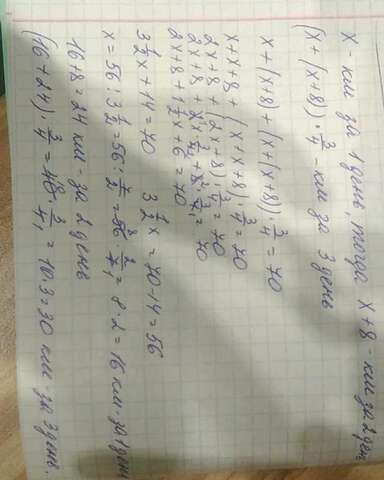 x - км за 1 день, тогда x+8 - км за 2 день
(x+(x+8))·3/4 - км за 3 день
x+(x+8)+(x+(x+8))·3/4=70
x+x+8+(x+x+8)·3/4=70
2x+8+(2x+8)·3/4=70
2x+8+2x·3/4+8·3/4=70
2x+8+1 1/2x+6=70
3 1/2x+14=70 3 1/2x=70-14=56
x=56:3 1/2=56:7/2=56·2/7=8·2=16 км-за 1 день
16+8=24 км-за 2 день
(16+24)·3/4=40·3/4=10·3=30 км-за 3 день.